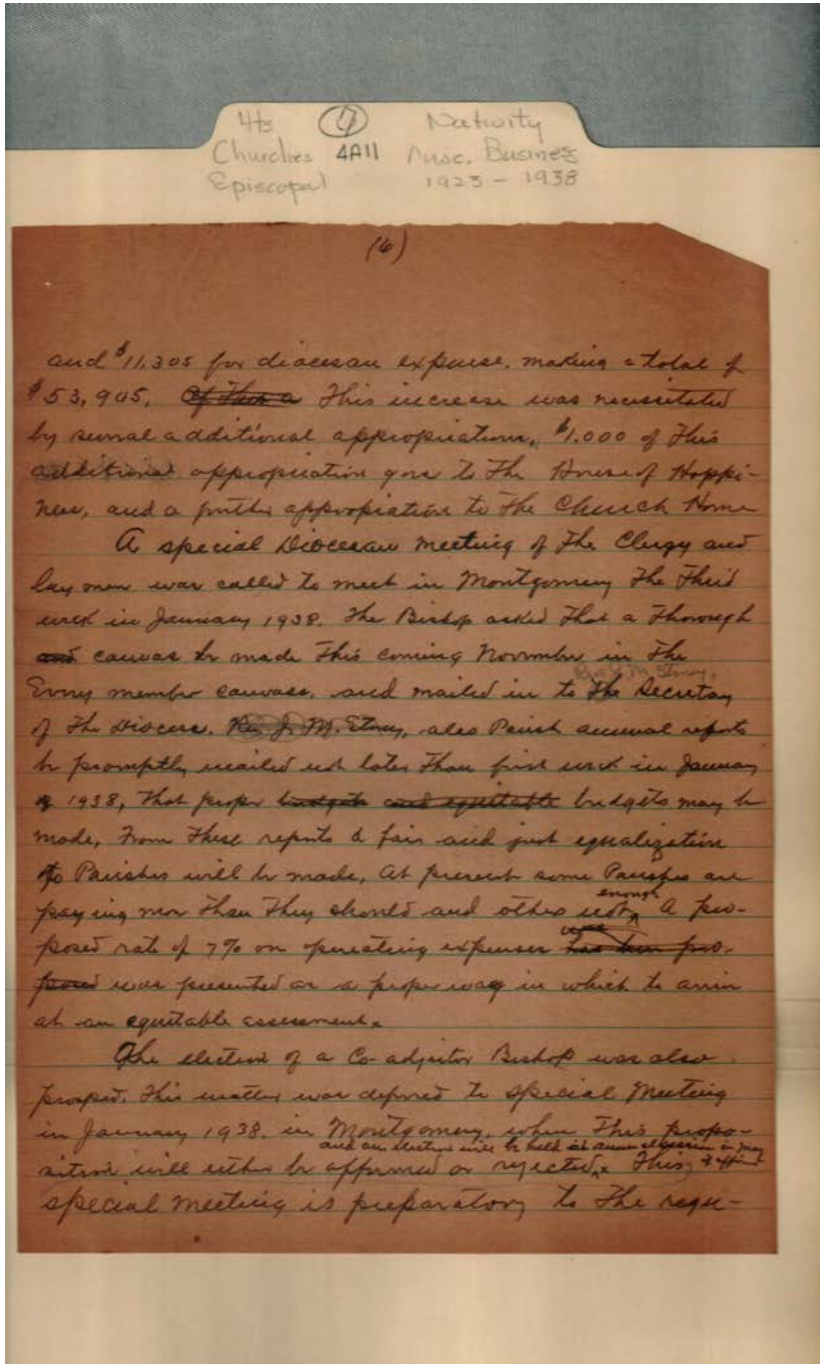 4ts (7) Nativity
Churches 4A11 Misc. Business
Episcopal 1923 - 1938
(6)
and $11,305 for diocesan expense, making a total of
$53,905. Of This a This increase was necessitated
by several additional appropriations, $1,000 of This
additional appropriation goes to The House of Happi-
ness, and a further appropriation to The Church Home
A special Diocesan meeting of The Clergy and
lay men was called to meet in Montgomery The Third
week in January 1938. The Bishop asked That a Thorough
and canvas be made This coming November in The
Rev. J. M. Stoney,
Every member canvass, and mailed in to The Secretary
of The Diocese. Rev. J. M. Stoney, also Parish annual reports
be promptly mailed not later Than first week in January
of 1938, That proper budgets and equitable budgets may be
made, From These reports a fair and just equalization
to Parishes will be made, At present some Parishes are
enough
paying more Than They should and others not. A pro-
was
posed rate of 7% on operating expenses has been pro-
posed was presented as a proper way in which to arrive
at an equitable assessment.
The election of a Co-adjutor Bishop was also
proposed. This matter was deferred to special Meeting
in January 1938. in Montgomery, when This propo-
and an election will be held at annual session in May if affirmed
sition will either be affirmed or rejected. This
special meeting is preparatory to The regu-